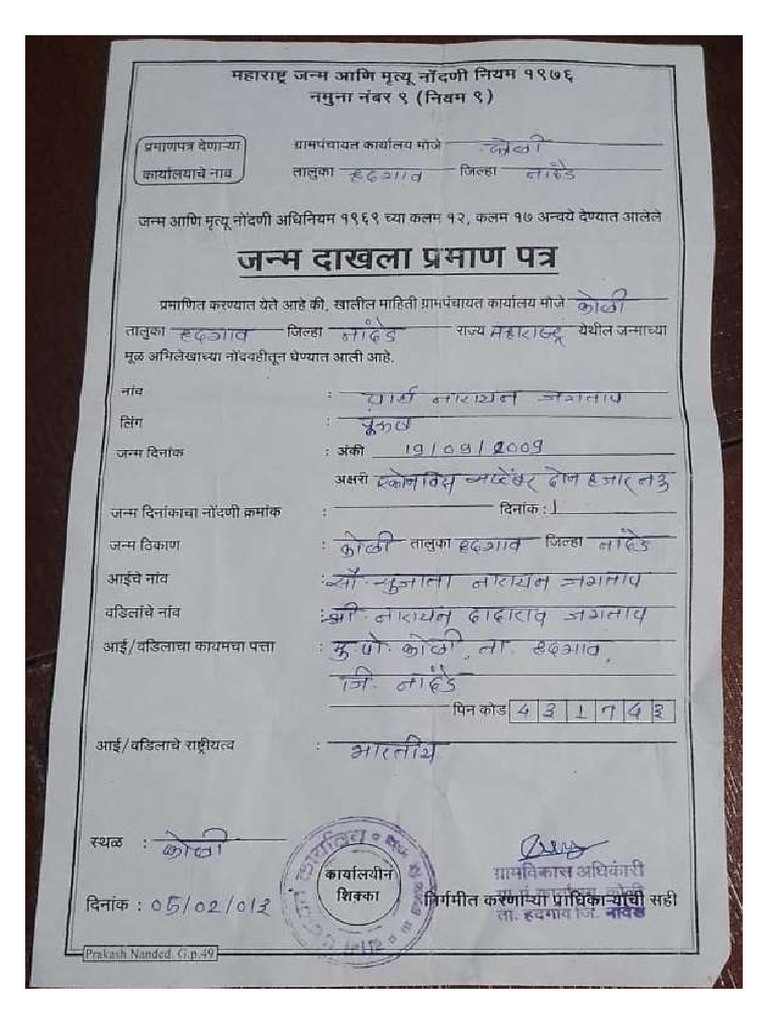 महाराष्ट्र जन्म आणि मृत्यू नोंदणी नियम १९७६
नमुना नंबर ९ (नियम ९)
प्रमाणपत्र देणाऱ्या ग्रामपंचायत कार्यालय मोजे कोळी
कार्यालयाचे नाव तालुका हदगाव जिल्हा नांदेड
जन्म आणि मृत्यू नोंदणी अधिनियम १९६९ च्या कलम १२, कलम १७ अन्वये देण्यात आलेले
जन्म दाखला प्रमाण पत्र
प्रमाणित करण्यात येते आहे की, खालील माहिती ग्रामपंचायत कार्यालय मोजे कोळी
तालुका हदगाव जिल्हा नांदेड राज्य महाराष्ट्र येथील जन्माच्या
मूळ अभिलेखाच्या नोंदवहीतून घेण्यात आली आहे.
नांव : नारायण जगताप
लिंग : पुरुष
जन्म दिनांक : अंकी 19/09/2009
अक्षरी एकोनविस सप्टेंबर दोन हजार नऊ
जन्म दिनांकाचा नोंदणी क्रमांक : दिनांक :
जन्म ठिकाण : कोळी तालुका हदगाव जिल्हा नांदेड
आईचे नांव : सौ. सुजाता नारायन जगताप
वडिलांचे नांव : श्री नारायन दादाराव जगताप
आई/वडिलाचा कायमचा पत्ता : मु.पो. कोळी, ता. हदगाव,
जि. नांदेड
पिन कोड 431743
आई/वडिलाचे राष्ट्रीयत्व : भारतीय
स्थळ : कोळी
कार्यालयीन
शिक्का
ग्रामविकास अधिकारी
दिनांक : 05/02/013 निर्गमीत करणाऱ्या प्राधिकाऱ्यांची सही
ता. हदगाव जि. नांदेड
Prakash Nanded. G.p.49